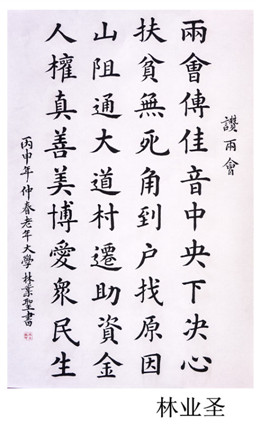 讃兩會
兩會傳佳音中央下决心
扶貧無死角到户找原因
山阻通大道村遷助資金
人權真善美博愛衆民生
丙申年仲春老年大學林業聖書
林业圣